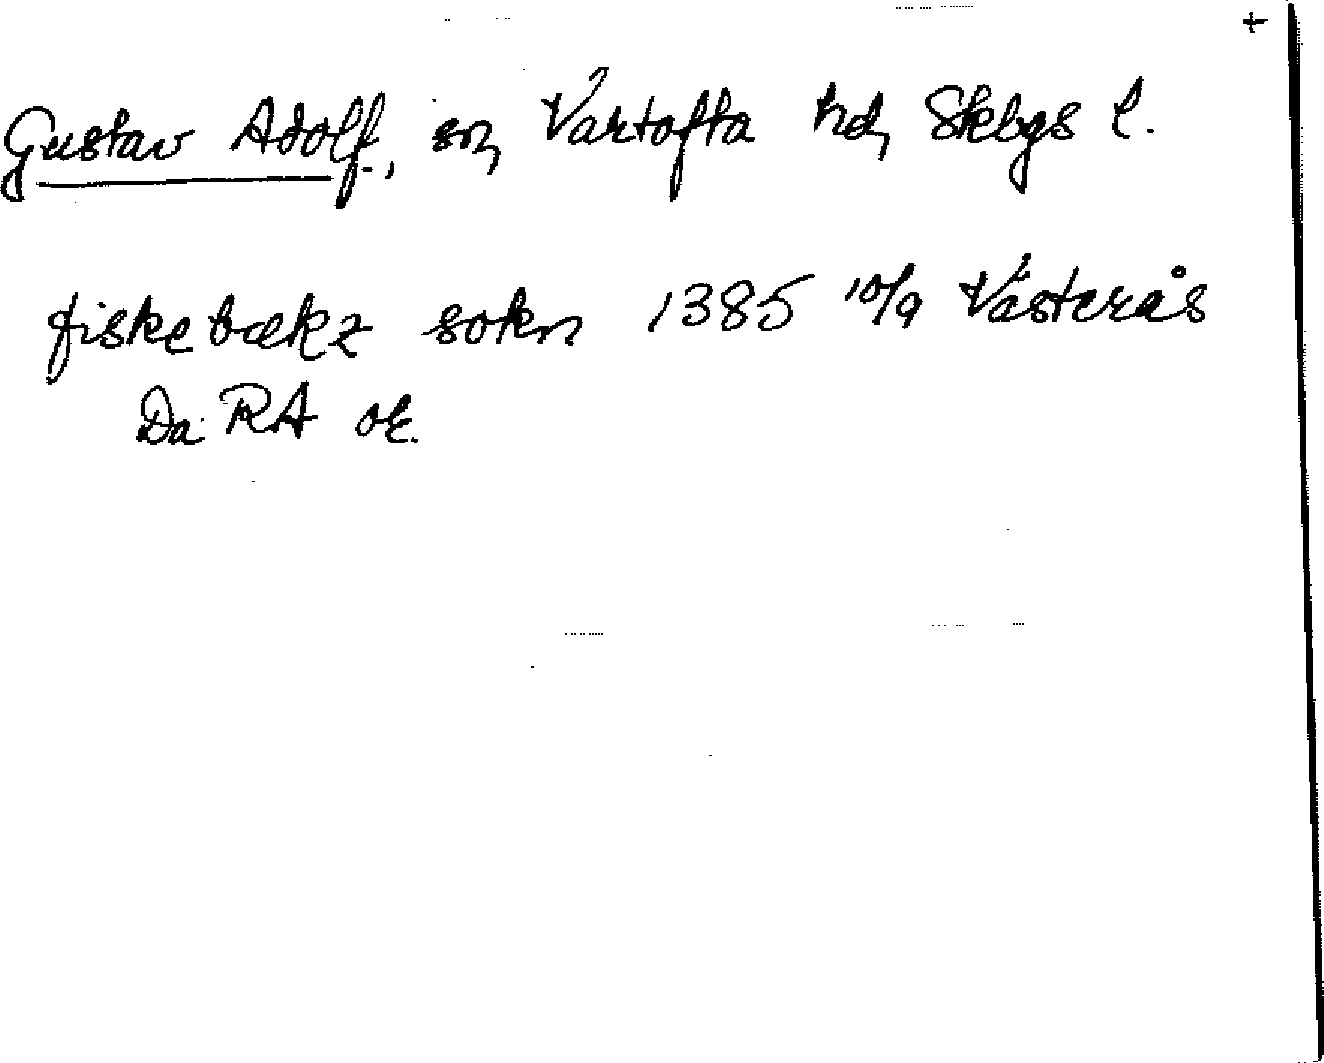 +
Gustav Adolf, sn, Vartofta hd, Skbgs l.
fiskebækz sokn 1385 10/9 Västerås
Da RA or.